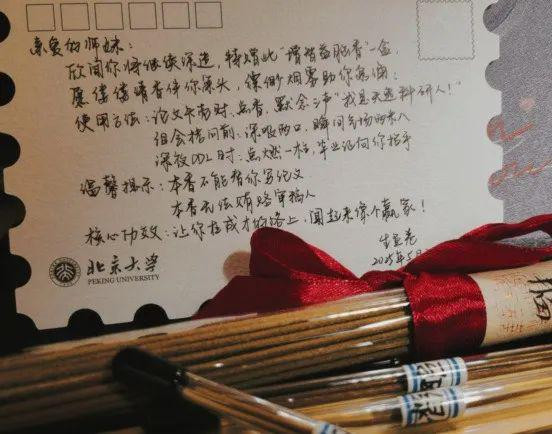 亲爱的师妹:
欣闻你将继续深造,特赠此"谱智益脑香"一盒,
愿缕缕清香伴你案头,缥缈烟雾助你思绪:
使用方法:论文卡壳时:点香,默念三声"我是天选科研人!"
组会提问前:深吸两口,瞬间气场两米八
深夜DDL时:点燃一柱,毕业证向你招手
温馨提示:本香不能替你写论文
本香无法贿赂审稿人
核心功效:让你在成才的路上,闻起来像个赢家!
2025年5月
北京大学
PEKING UNIVERSITY